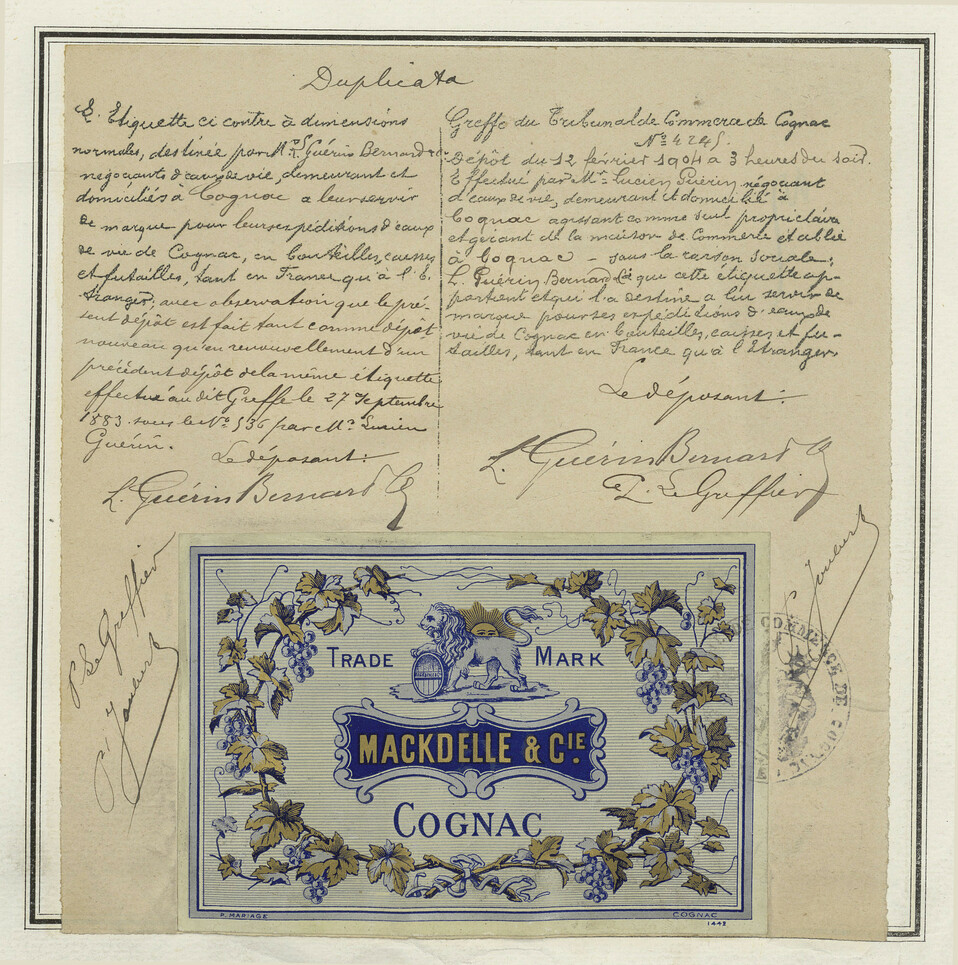 Duplicata
L'Etiquette ci contre à dimensions
normales, destinée par Mrs L. Guérin Bernard & Cie
négociants d'eaux de vie, demeurant et
domiciliés à Cognac a leur servir
de marque pour leurs expéditions d'eaux
de vie de Cognac, en bouteilles, caisses
et futailles, tant en France qu'à l'E-
tranger; avec observation que le pré-
sent dépôt est fait tant comme dépôt
nouveau qu'en renouvellement d'un
précédent dépôt de la même étiquette
effectué au dit Greffe le 27 Septembre
1883 sous le No 536 par Mr. Lucien
Guérin.
Le déposant:
L. Guérin Bernard Cie
Greffe du Tribunal de Commerce de Cognac
No 4245.
Dépôt du 12 février 1904 à 3 heures du soir.
Effectué par Mr. Lucien Guérin négociant
d'eaux de vie, demeurant et domicilié à
Cognac agissant comme seul propriétaire
et gérant de la maison de Commerce établie
à Cognac - sous la raison sociale:
L. Guérin Bernard & Cie que cette étiquette ap-
partient et qu'il la destine a lui servir de
marque pour ses expéditions d'eaux de
vie de Cognac en bouteilles, caisses et fu-
tailles, tant en France qu'à l'Etranger
Le déposant:
L. Guérin Bernard Cie
P. Le Greffier
P. Le Greffier
TRADE MARK
MACKDELLE & CIE.
COGNAC
R. MARIAGE
COGNAC
1442
DE COMMERCE DE COGNAC